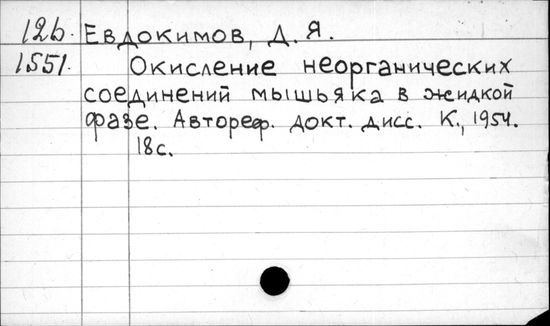 12б. Евдокимов, Д. Я.
1551. Окисление неорганических
соединений мышьяка в жидкой
фазе. Автореф. докт. дисс. К., 1954.
18с.